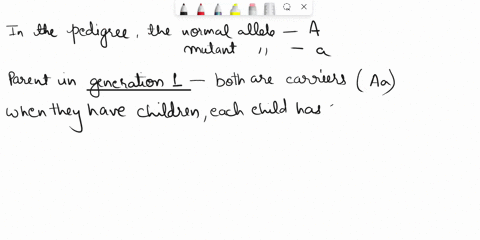 In the pedigree, the normal allele – A
mutant ,, – a
Parent in generation 1 – both are carriers (Aa)
when they have children, each child has